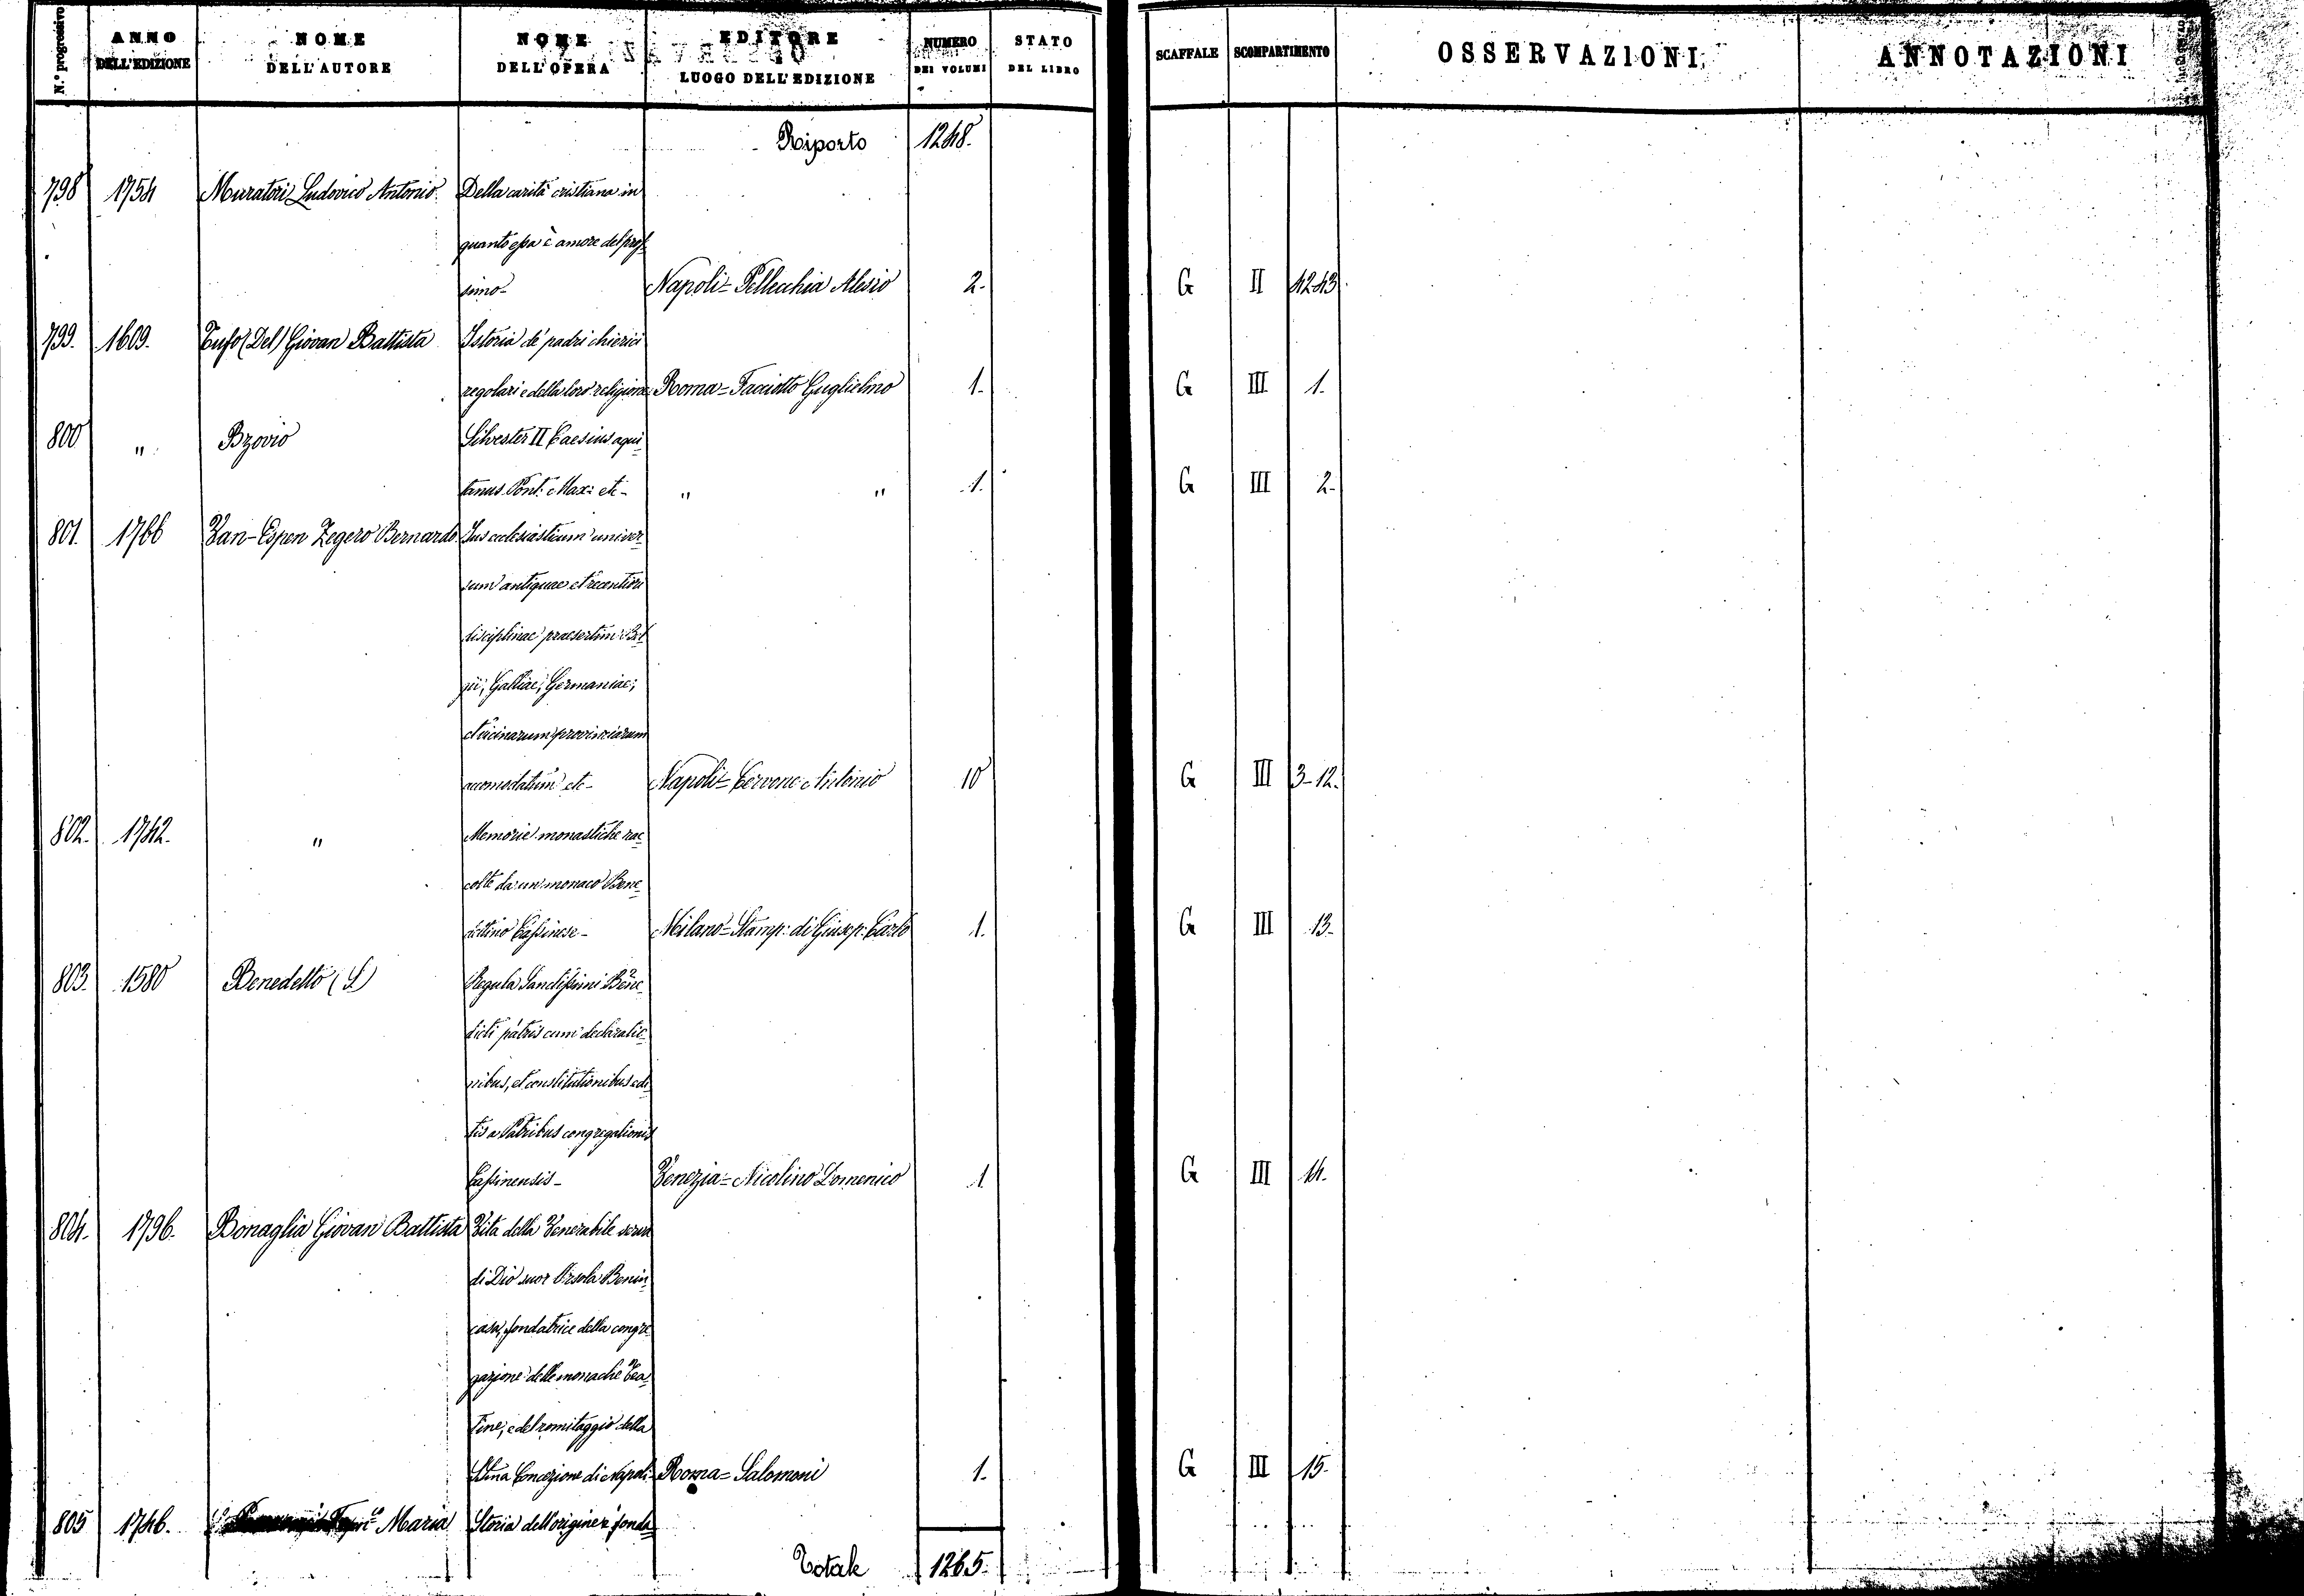 N.º progressivo ANNO DELL'EDIZIONE NOME DELL'AUTORE NOME DELL'OPERA EDITORE LUOGO DELL'EDIZIONE NUMERO DEI VOLUMI STATO DEL LIBRO SCAFFALE SCOMPARTIMENTO OSSERVAZIONI ANNOTAZIONI
Riporto 1248.
798 1754 Muratori Ludovico Antonio Della carità cristiana in
quanto essa è amore del pros
simo - Napoli = Pellecchia Alesio 2. G II 42-43
799. 1609. Tufo (Del) Giovan Battista Istoria de' padri chierici
regolari e della loro religione Roma = Facciotto Guglielmo 1. G III 1.
800 " Bzovio Silvester II Caesius aqui
tanus Pont: Max: etc - " " 1. G III 2.
801. 1766 Van-Espen Zegero Bernardo Jus ecclesiasticum univer
sum antiquae et recentiori
disciplinae praesertim Bel
gii, Galliae, Germaniae,
et vicinarum provinciarum
accomodatum etc - Napoli = Cervone Antonio 10 G III 3-12.
802. 1742. " Memorie monastiche rac
colte da un monaco Bene
dettino Cassinese - Milano = Stamp: di Giusep: Carlo 1. G III 13.
803. 1580 Benedetto (S.) Regula Sanctissimi Bene
dicti patris cum declaratio
nibus, et constitutionibus edi
tis a Patribus congregationis
Cassinensis - Venezia = Nicolino Domenico 1 G III 14.
804. 1796. Bonaglia Giovan Battista Vita della Venerabile serva
di Dio suor Orsola Benin
casa, fondatrice della congre
gazione delle monache Tea
tine, e del romitaggio della
SS.ma Concezione di Napoli Roma = Salomoni 1. G III 15.
805 1746. Maria Storia dell'origine e fonda
Totale 1265.